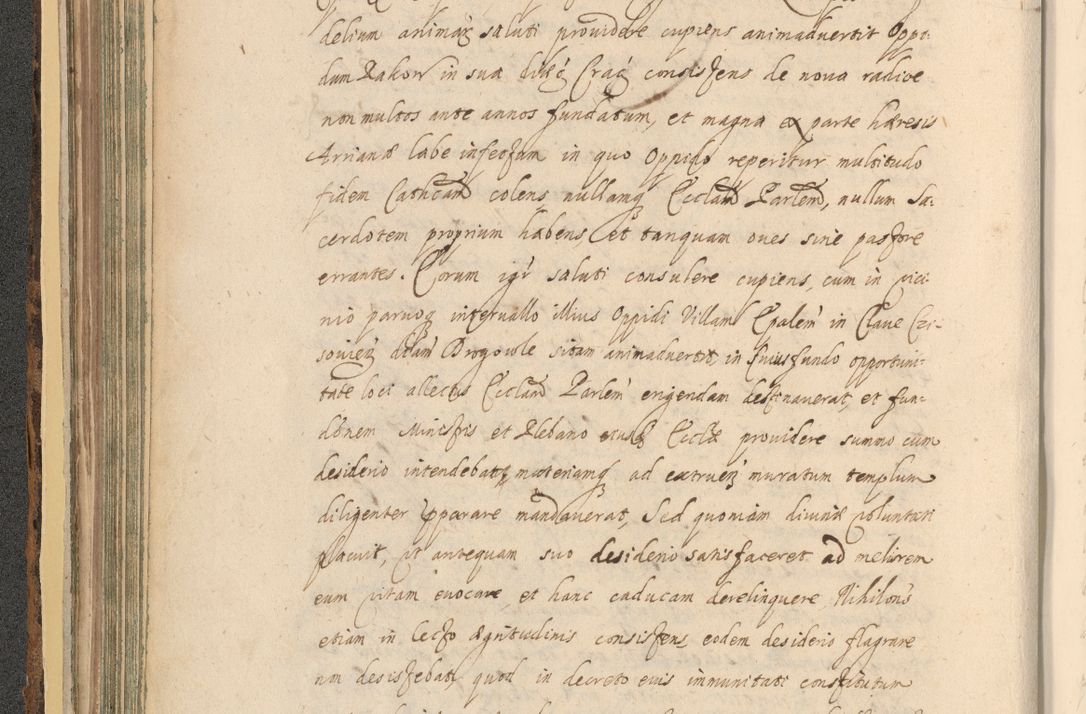 delium animarꝫ saluti prouidere cupiens animaduertit Oppi-
dum Rakow in sua diæcꝫ Cracꝫ consistens de noua radice
non multos ante annos fundatum, et magna ex parte hæresis
Arrianæ labe infectum in quo Oppido reperitur multitudo
fidem Cathcam colens nullamqꝫ Ecclam Parlem, nullum Sa-
cerdotem proprium habens, et tanquam oues sine pastore
errantes. Eorum igr saluti consulere cupiens, cum in vici-
nio paruoqꝫ interuallo illius Oppidi Villam Epalem in Claue
souien dctam Drogowle sitam animaduertit, in huius fundo opportuni-
tate loci allectus Ecclam Parlem erigendam destinauerat, et fun-
dõnem Ministris et Plebano eiusdꝫ Ecclæ prouidere summo cum
desiderio intendebat, materiamqꝫ ad extruen muratum templum
diligenter pparare mandauerat, Sed quoniam diuinæ voluntati
placuit, ut antequam suo desiderio satisfaceret ad meliorem
eum vitam euocare, et hanc caducam derelinquere, Nihilons
etiam in lecto ægritudinis consistens eodem desiderio flagrare
non desistebat, quod in decreto eius immunitati constitutum